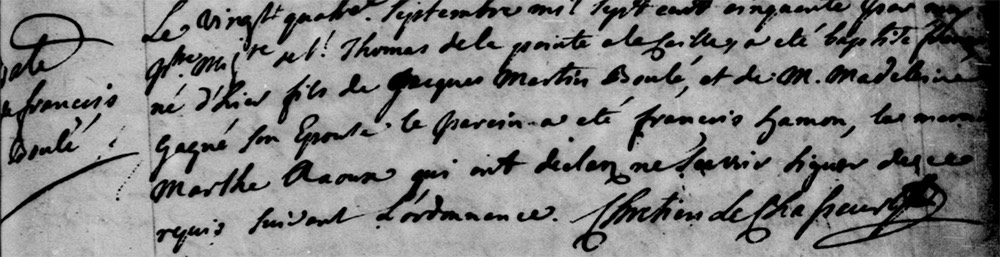 francois
Boulé
Le vingt quatre Septembre mil sept cent cinquante par
St. Thomas de la pointe a la Caille, a eté baptisé
né d'hier fils de Jacques Martin Boulé, et de M. Madeleine
Gagné Son Epouse le parein a eté francois hamon, la
Marthe qui ont declaré ne Scavoir Signer de ce
requis Suivant L'ordonnance. Chretien